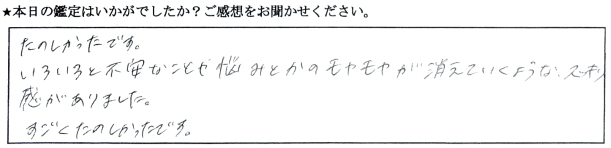 ★本日の鑑定はいかがでしたか？ご感想をお聞かせください。
たのしかったです。
いろいろと不安なことや悩みとかのモヤモヤが消えていくような、スッキリ
感がありました。
すごくたのしかったです。